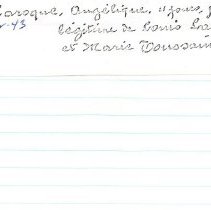 Laroque, Angélique, 11 jours, f
-43 légitime de Louis La
et Marie Toussain